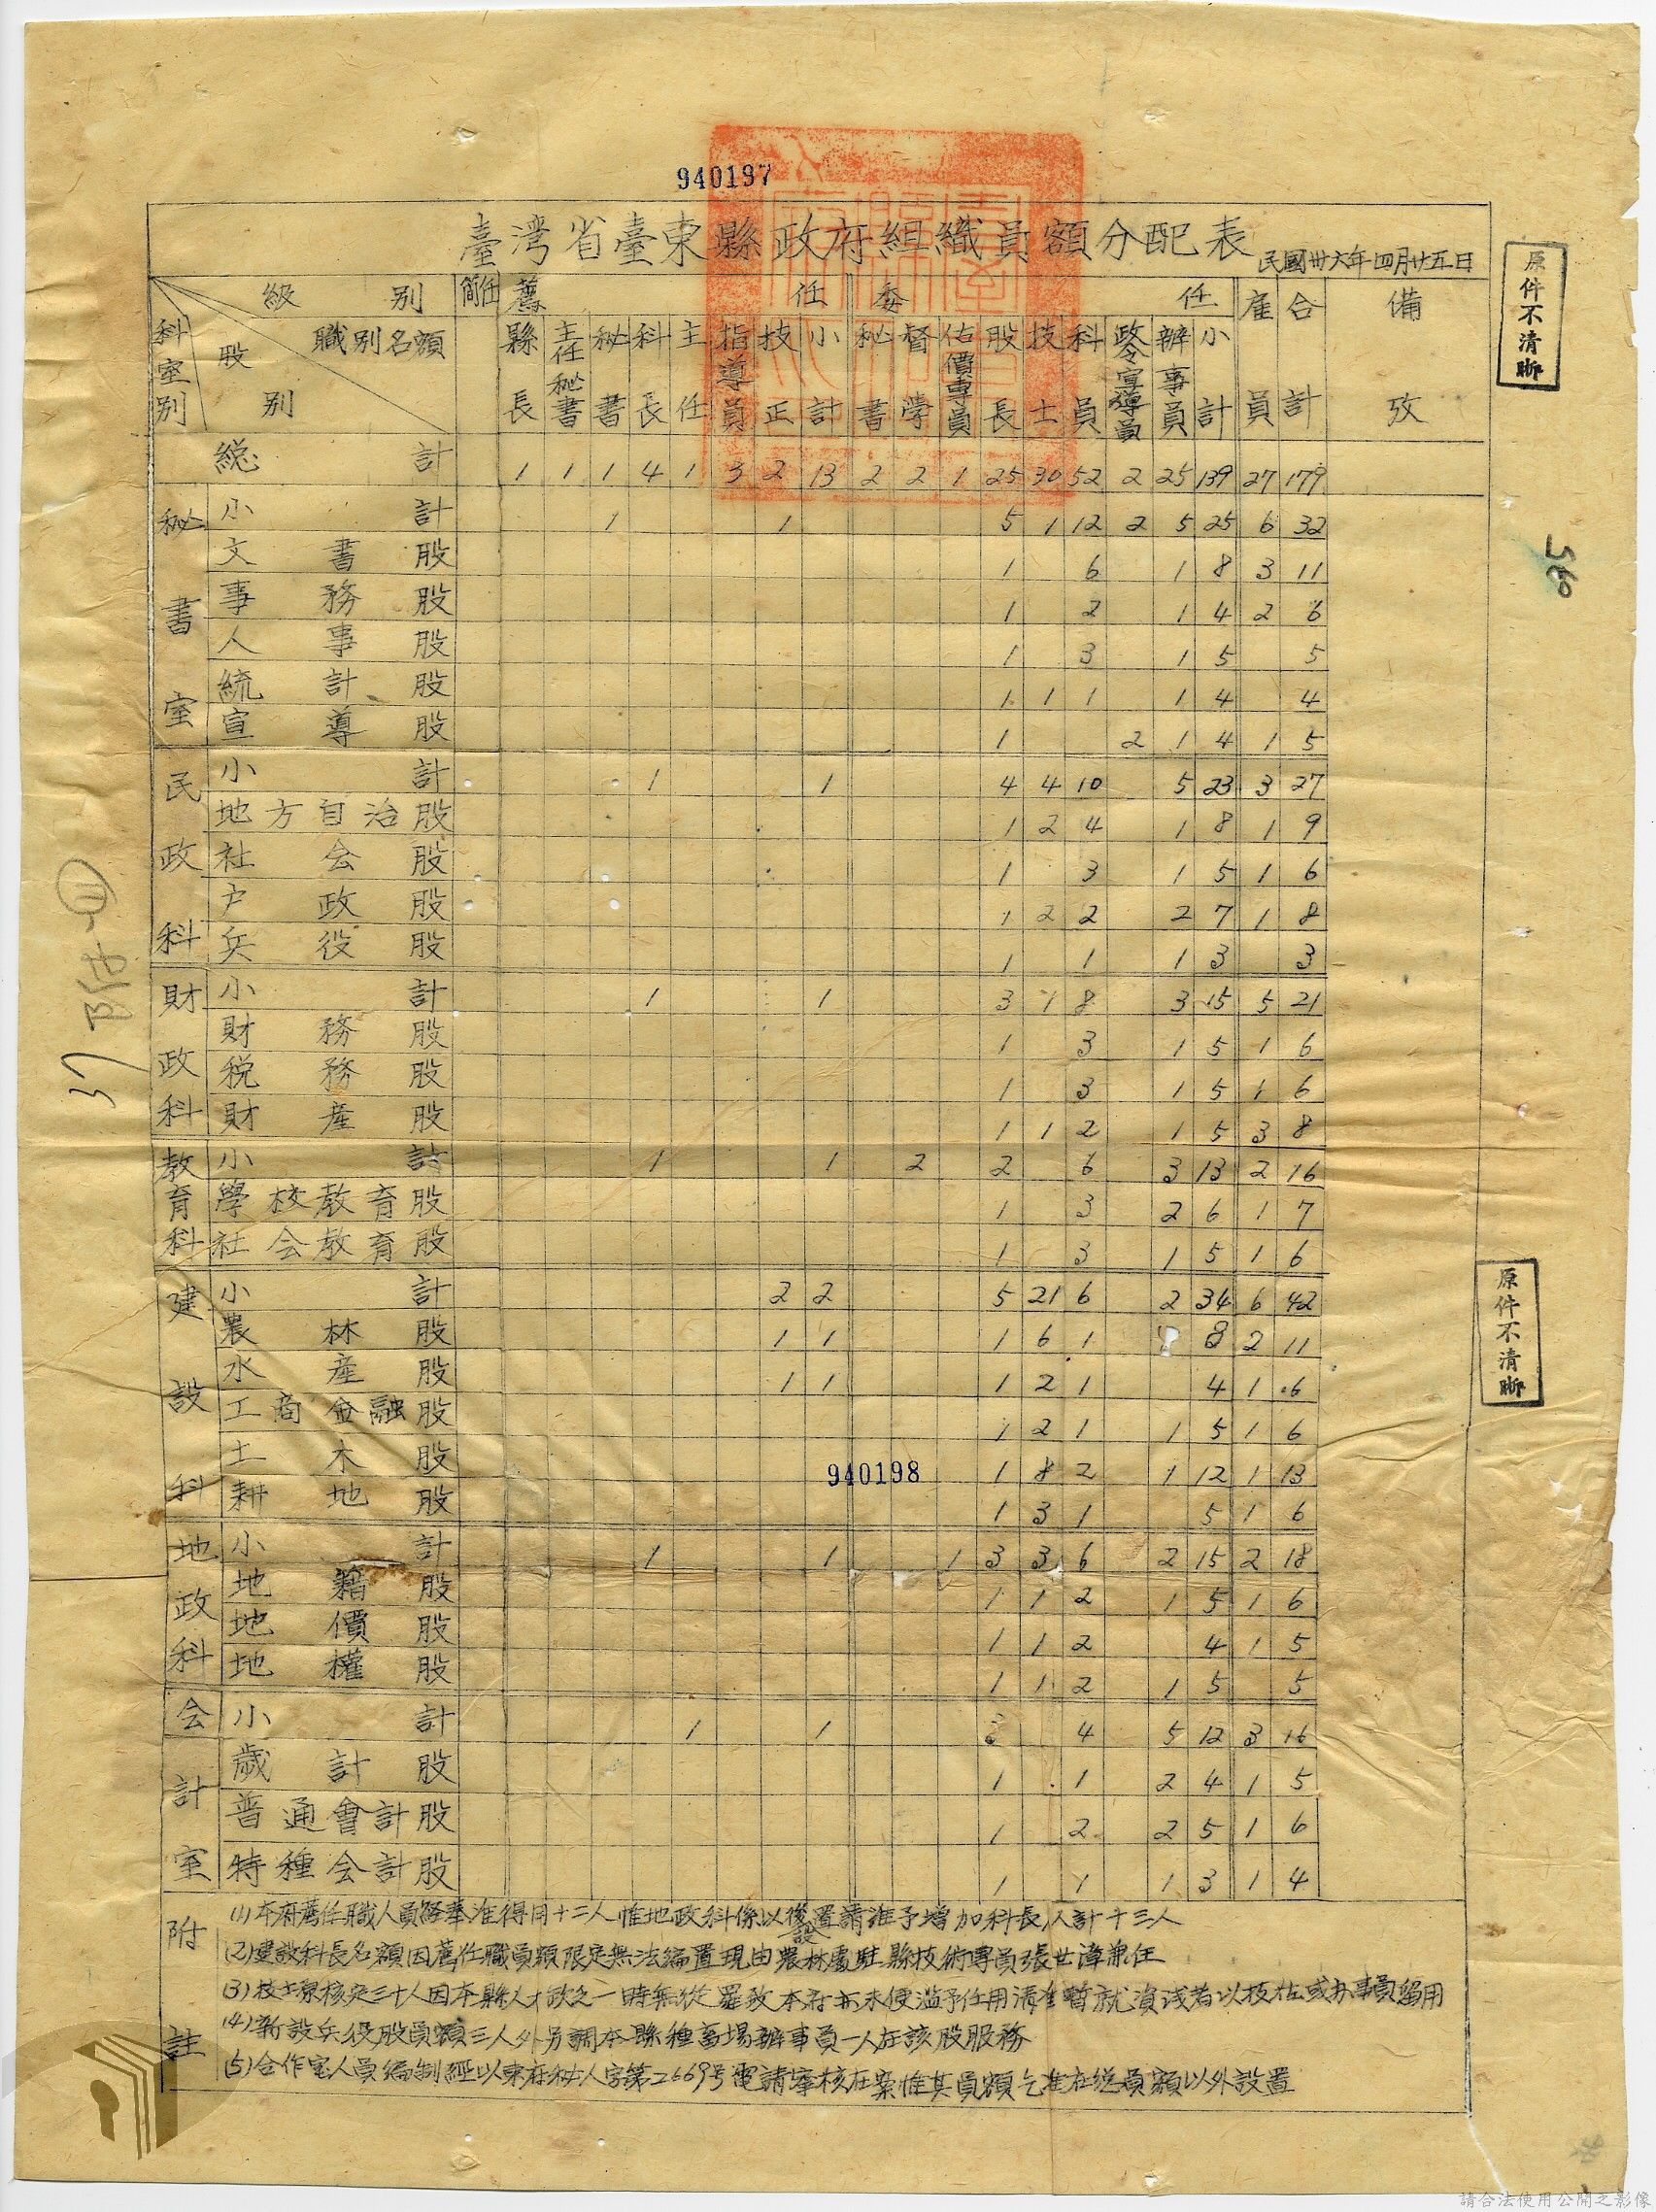 940197
臺灣省臺東縣政府組織員額分配表
民國卅六年四月廿五日
級別 簡任 薦任 委任 雇員 合計 備攷
科室別 股別 職別名額 縣長 主任秘書 秘書 科長 主任 指導員 技正 小計 秘書 督學 估價專員 股長 技士 科員 政令宣導員 辦事員 小計
総計 1 1 1 4 1 3 2 13 2 2 1 25 30 52 2 25 139 27 179
秘書室
小計 1 1 5 1 12 2 5 25 6 32
文書股 1 6 1 8 3 11
事務股 1 2 1 4 2 6
人事股 1 3 1 5 5
統計股 1 1 1 1 4 4
宣導股 1 2 1 4 1 5
民政科
小計 1 1 4 4 10 5 23 3 27
地方自治股 1 2 4 1 8 1 9
社会股 1 3 1 5 1 6
户政股 1 2 2 2 7 1 8
兵役股 1 1 1 3 3
財政科
小計 1 1 3 1 8 3 15 5 21
財務股 1 3 1 5 1 6
税務股 1 3 1 5 1 6
財產股 1 1 2 1 5 3 8
教育科
小計 1 1 2 2 6 3 13 2 16
學校教育股 1 3 2 6 1 7
社会教育股 1 3 1 5 1 6
建設科
小計 2 2 5 21 6 2 34 6 42
農林股 1 1 1 6 1 8 2 11
水產股 1 1 1 2 1 4 1 6
工商金融股 1 2 1 1 5 1 6
土木股 1 8 2 1 12 1 13
940198
耕地股 1 3 1 5 1 6
地政科
小計 1 1 1 3 3 6 2 15 2 18
地籍股 1 1 2 1 5 1 6
地價股 1 1 2 4 1 5
地權股 1 1 2 1 5 5
会計室
小計 1 1 3 4 5 12 3 16
歲計股 1 1 2 4 1 5
普通會計股 1 2 2 5 1 6
特種会計股 1 1 1 3 1 4
附註
(1)本府薦任職人員經奉准得用十二人惟地政科係以後設置請准予增加科長一人計十三人
(2)建設科長名額因薦任職員額限定無法編置現由農林處駐縣技術專員張世漳兼任
(3)技士原核定三十人因本縣人才缺乏一時無從羅致本府亦未便濫予任用請准暫就資淺者以技佐或办事員留用
(4)新設兵役股員額三人外另調本縣種畜場辦事員一人在該股服務
(5)合作室人員編制經以東府秘人字第2669号電請察核在案惟其員額乞准在総員額以外設置
原件不清晰
560
原件不清晰
37
附件(1)
請合法使用公開之影像